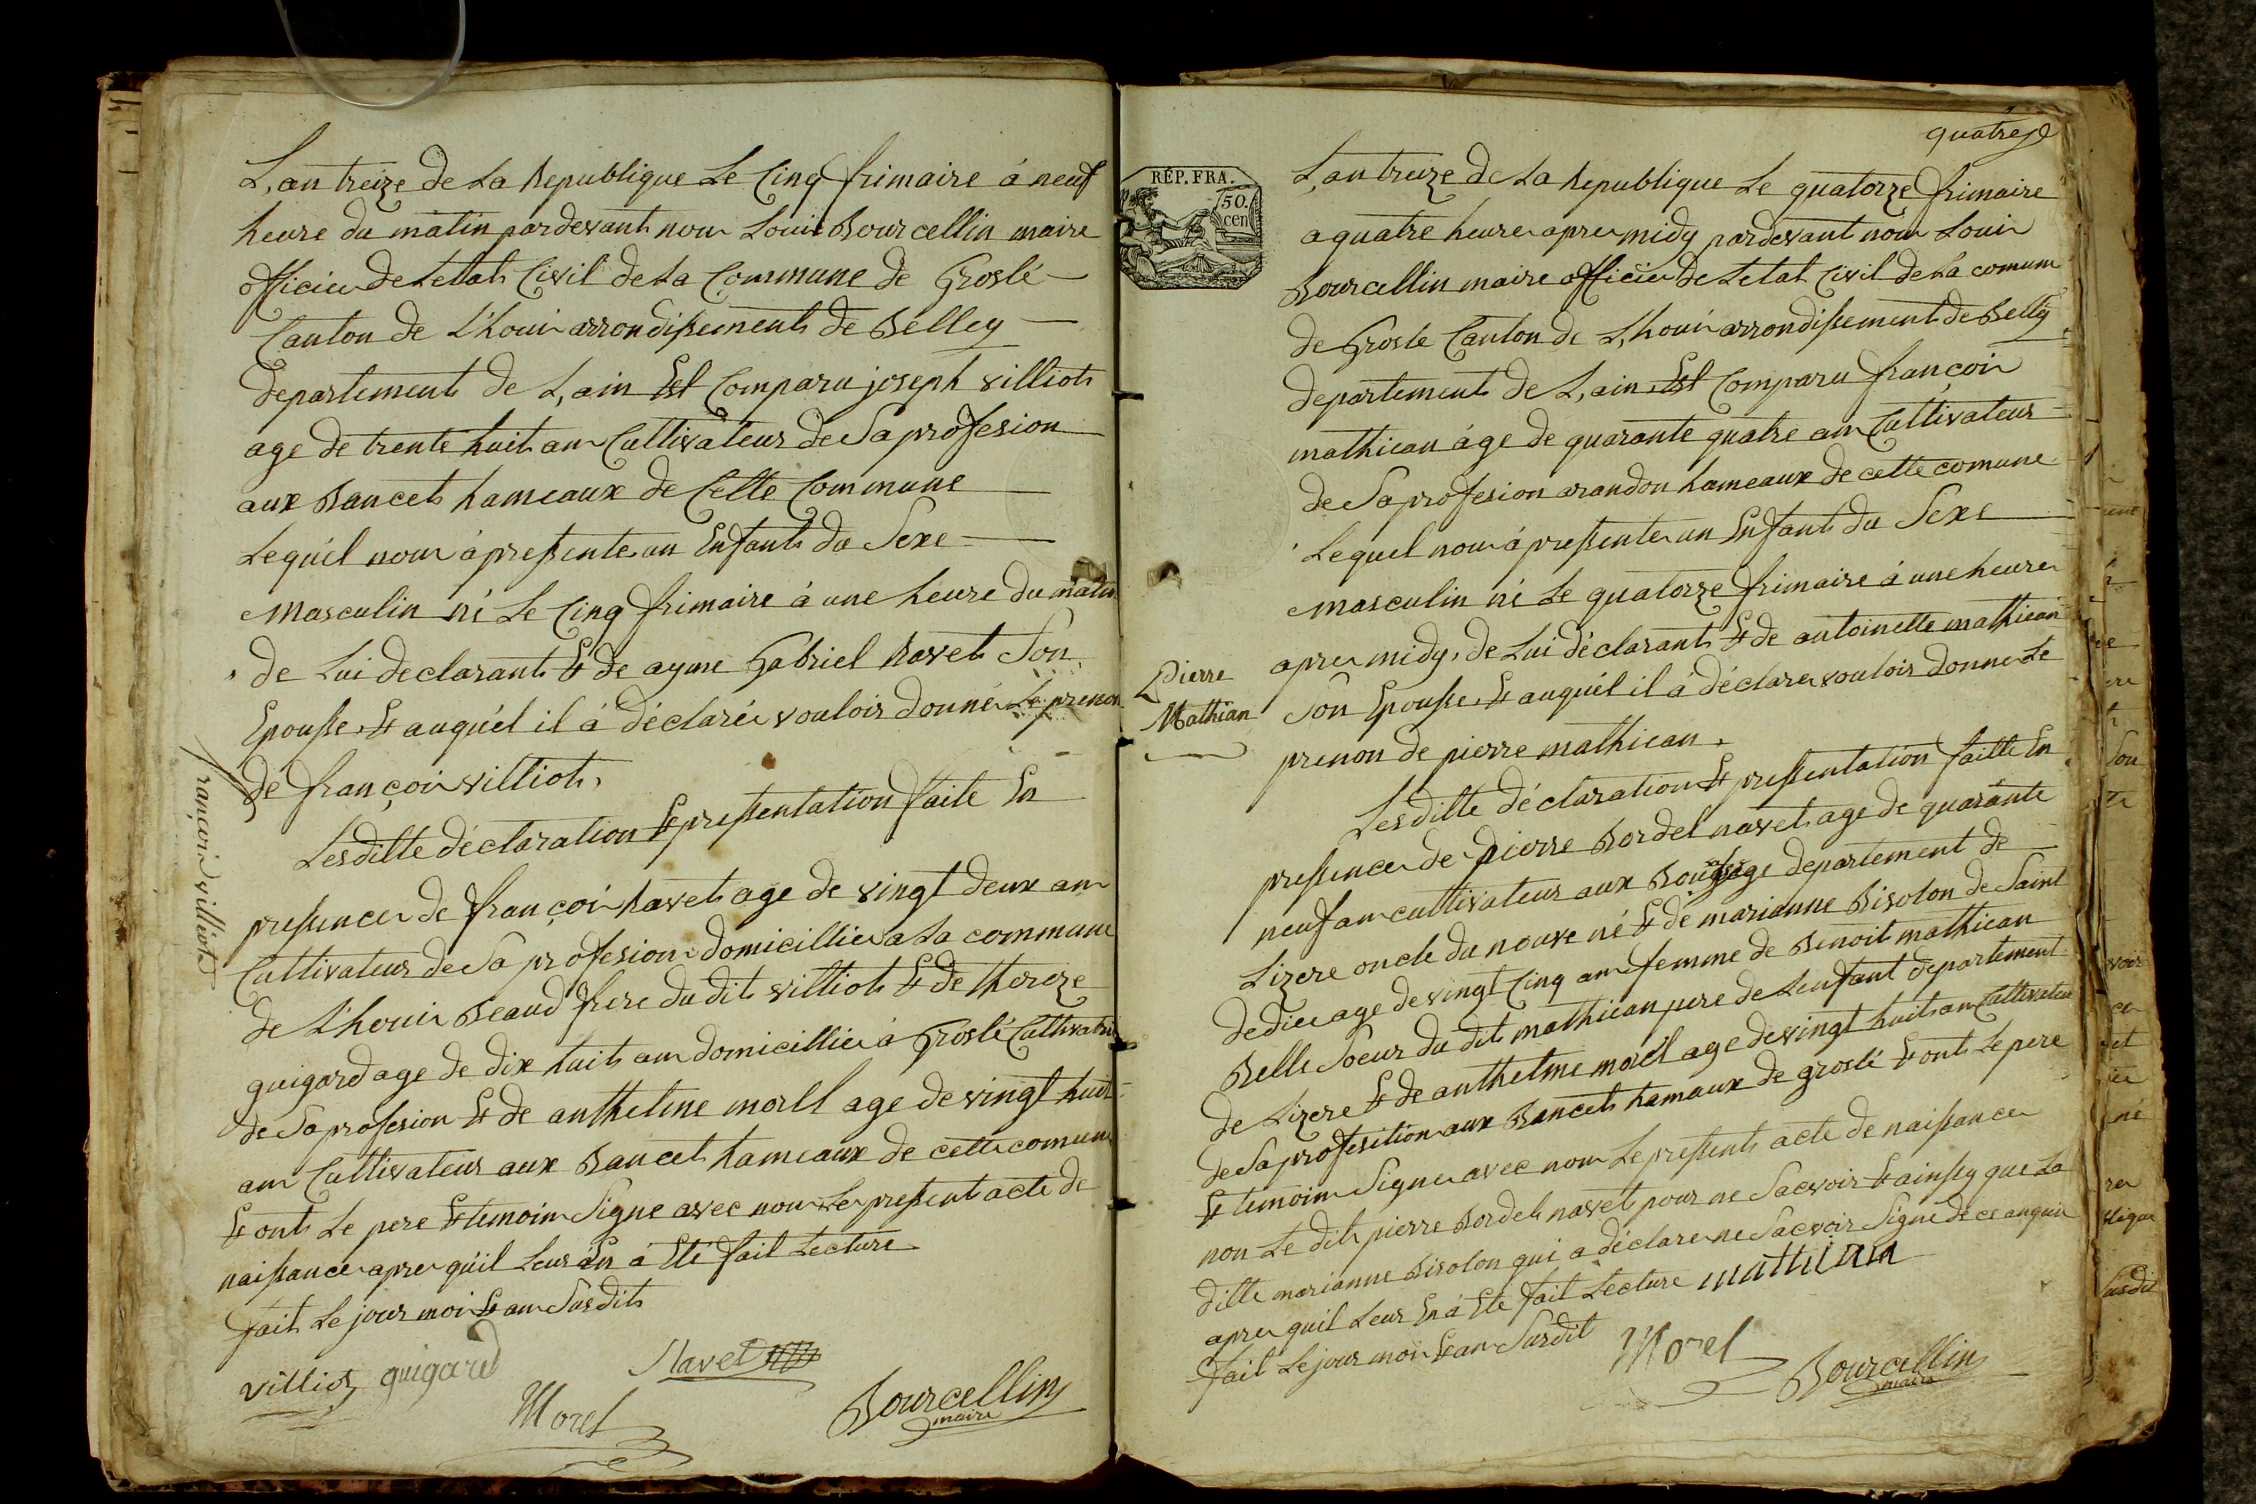 L, an treize de La Republique Le Cinq frimaire á neuf
heure du matin pardevant nous Louis Bourcellin maire
officier de Letat Civil de La Commune de Groslé
Canton de L'houi arrondissement de Bélley
departement de L, ain Est Comparu joseph villiot
age de trente huit an Cultivateur de Sa profesion
aux Bancet hameaux de Cette Commune
Lequél nous á pressente un Enfant du Sexe
Masculin né Le Cinq frimaire á une heure du matin
de Lui declarant Et de ayme Gabriel Navet Son
Epousse, Et auquél il á déclarée vouloir donné Le prenon
de françoi villiot,
Lesditte déclaration Et pressentation faite En
pressence de françoi Navet age de vingt deux an
Cultivateur de Sa profesion domicillier a La commune
de L'houi Beaud frere du dit villiot Et de thereze
guigard age de dix huit an domicillier á Groslé Cultivatri
de Sa profesion Et de anthelme morell age de vingt huit
an Cultivateur aux Bancet hameaux de cette comune
Et ont Le pere Et temoin Signe avec nous Le pressent acte de
naissance apre qu'il Leur En á Eté fait Lecture
fait Le jour moi Et an Susdit
françoi villiot
villiot guigard Navet
Morel Bourcellin
maire
quatre
RÉP. FRA.
50.
cen
L, an treize de La Republique Le quatorze frimaire
a quatre heure apre midy pardevant nous Loui
Bourcellin maire officier de Letat Civil de La comune
de Grosle Canton de L, houi arrondissement de Belly
departement de L, ain Est Comparu françoi
mathiean áge de quarante quatre an Cultivateur
de Sa profesion arandon hameaux de cette comune
Lequel nous á pressente un Enfant du Sexe
masculin né Le quatorze frimaire á une heure
apre midy, de Lui déclarant Et de antoinette mathiean
Pierre
Mathian
Son Epousse, Et auquél il á déclare vouloir donne Le
prenon de pierre mathiean.
Lesditte déclaration Et pressentation faitte En
pressence de pierre Bordel navet age de quarante
neuf an cultivateur aux departement de
Lizere oncle du nouve né Et de marianne Bisolon de Saint
dedier age de vingt Cinq an femme de Benoit mathiean
Belle Soeur du dit mathiean pere de Lenfant departement
de Lizere Et de anthelme morél age de vingt huit an Cultivateur
de Sa profesition aux Bancet hamaux de groslé Et ont Le pere
Et temoin Signe avec nous Le pressent acte de naissance
non Le dit pierre Bordel navet pour ne Sacvoir Et ainssy que La
ditte marianne Bisolon qui a déclare ne Sacvoir Signe de ce
apre quil Leur En á Eté fait Lecture mathian
fait Le jour moi Et an Surdit
Morel Bourcellin
maire